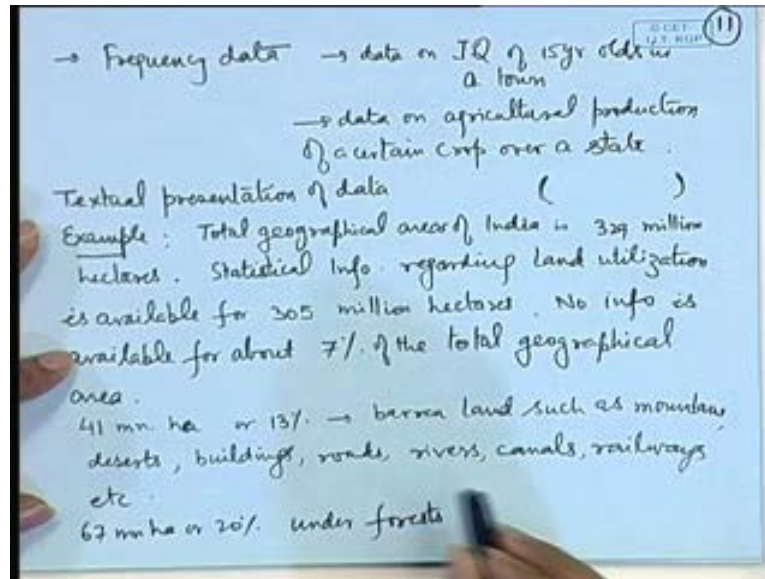 11
© CET
I.I.T. KGP
→ Frequency data → data on IQ of 15yr olds in
a town
→ data on agricultural production
of a certain crop over a state.
Textual presentation of data ( )
Example : Total geographical area of India is 329 million
hectares. Statistical Info. regarding Land utilization
is available for 305 million hectares. No info is
available for about 7% of the total geographical
area.
41 mn. ha or 13% → barren land such as mountains,
deserts, buildings, roads, rivers, canals, railways
etc.
67 mn ha or 20% under forests